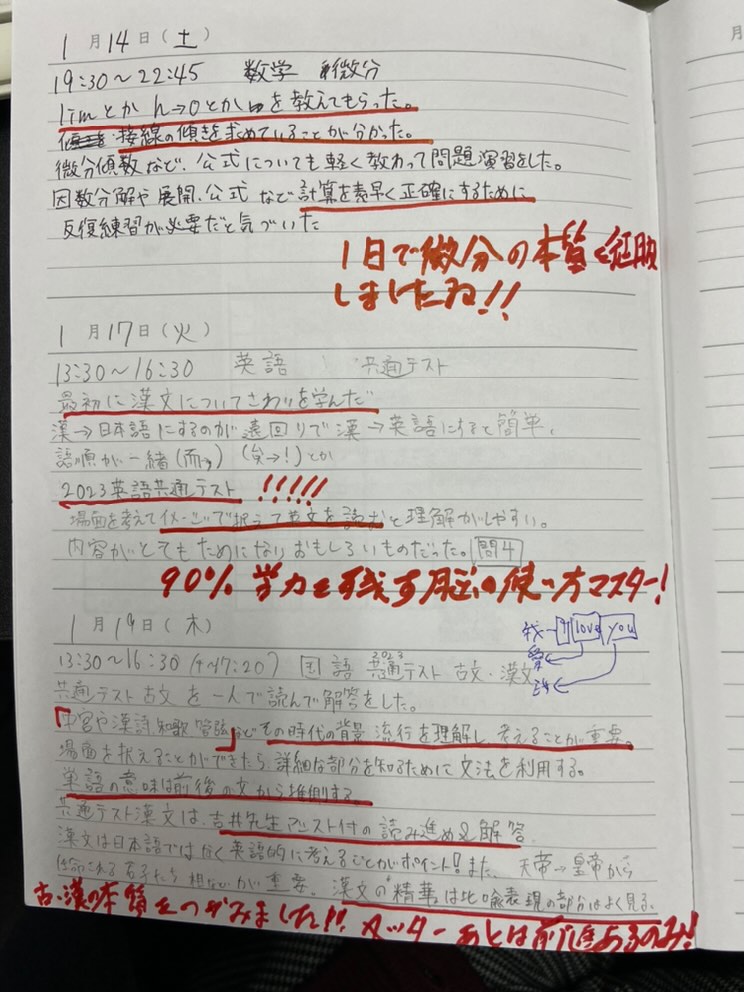 1月14日(土)
19:30〜22:45 数学 微分
limとか h→0とか を教えてもらった。
接線の傾きを求めていることが分かった。
微分係数など、公式についても軽く教わって問題演習をした。
因数分解や展開、公式などで計算を素早く正確にするために
反復練習が必要だと気づいた
1日で微分の本質を征服
しましたね!!
1月17日(火)
13:30〜16:30 英語 共通テスト
最初に漢文についてさわりを学んだ
漢→日本語にするのが遠回りで漢→英語にすると簡単、
語順が一緒(而→) (矣→!)とか
2023英語共通テスト !!!!!
場面を考えてイメージで捉えて英文を読むと理解がしやすい。
内容がとてもためになりおもしろいものだった。問4
90% 学力を残す脳の使い方マスター!
1月19日(木)
我 I love you
愛
13:30〜16:30(〜17:20) 国語 2023共通テスト 古文・漢文
共通テスト古文を一人で読んで解答をした。
「中宮や漢詩、和歌、管弦」などその時代の背景、流行を理解し、考えることが重要。
場面を捉えることができたら、詳細な部分を知るために文法を利用する。
単語の意味は前後の文から推測する。
共通テスト漢文は、吉井先生アシスト付の読み進め&解答。
漢文は日本語ではなく英語的に考えることがポイント!また、天帝→皇帝から
が重要、漢文の"精華"は比喩表現の部分はよく見る。
古・漢の本質をつかみました!! あとは前進あるのみ!